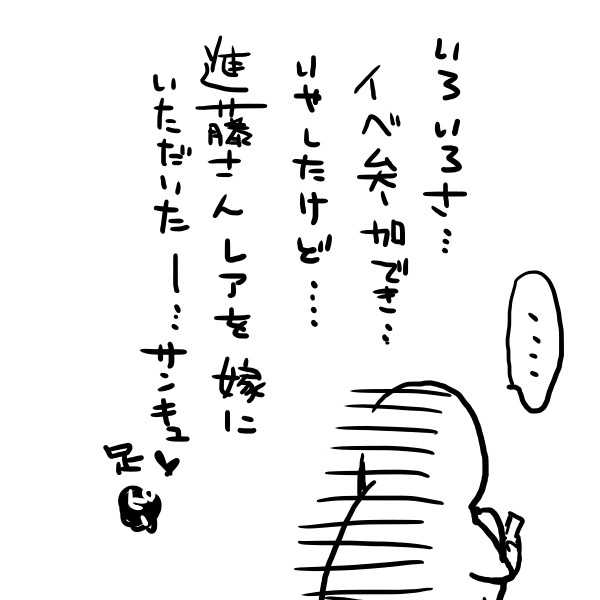 いろいろさ…
イベ参加でき…
いやしたけど…
進藤さんレアを嫁に
いただいたー…サンキュ
♥
……